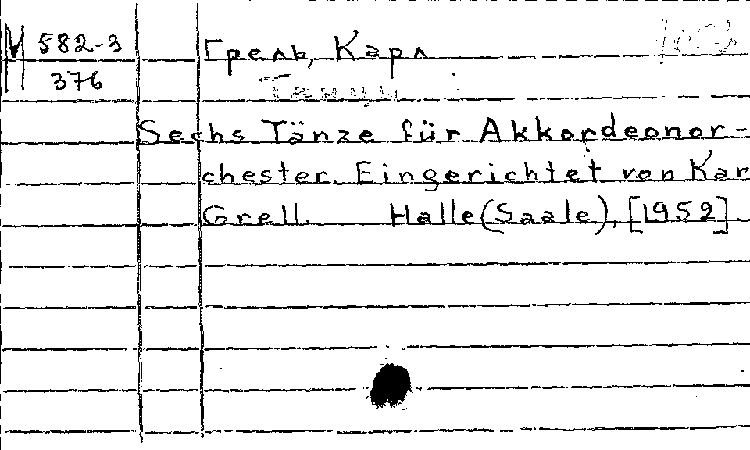 М 582-3
376
Грель, Карл
Танцы
Sechs Tänze für Akkordeonor-
chester. Eingerichtet von Kar
Grell. Halle (Saale), [1952]